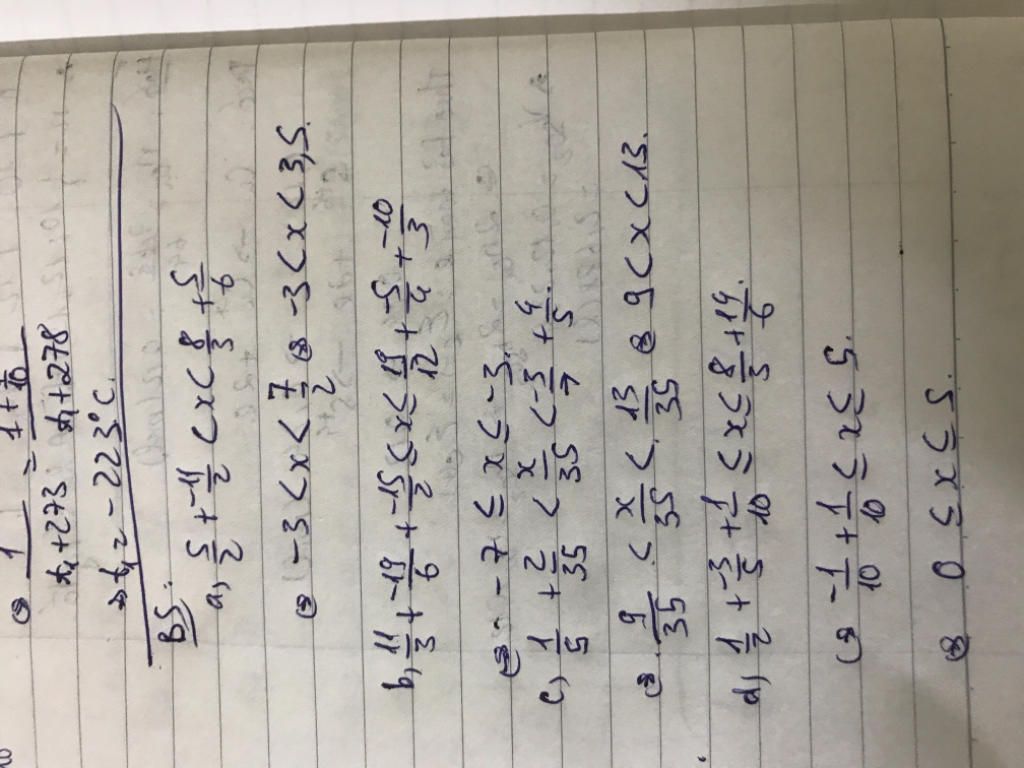 ⇔ 1/(t₁+273) = (1+1/10)/(t₁+278)
→ t₁ = -223°C.
B5:
a, 5/2 + -11/2 < x < 8/3 + 5/6
⇔ -3 < x < 7/2 ⇔ -3 < x < 3,5.
b, 11/3 + -19/6 + -15/2 ≤ x ≤ 19/12 + -5/4 + -10/3
⇔ -7 ≤ x ≤ -3.
c, 1/5 + 2/35 < x/35 < -3/7 + 4/5.
⇔ 9/35 < x/35 < 13/35 ⇔ 9 < x < 13.
d, 1/2 + -3/5 + 1/10 ≤ x ≤ 8/3 + 14/6.
⇔ -1/10 + 1/10 ≤ x ≤ 5.
⇔ 0 ≤ x ≤ 5.